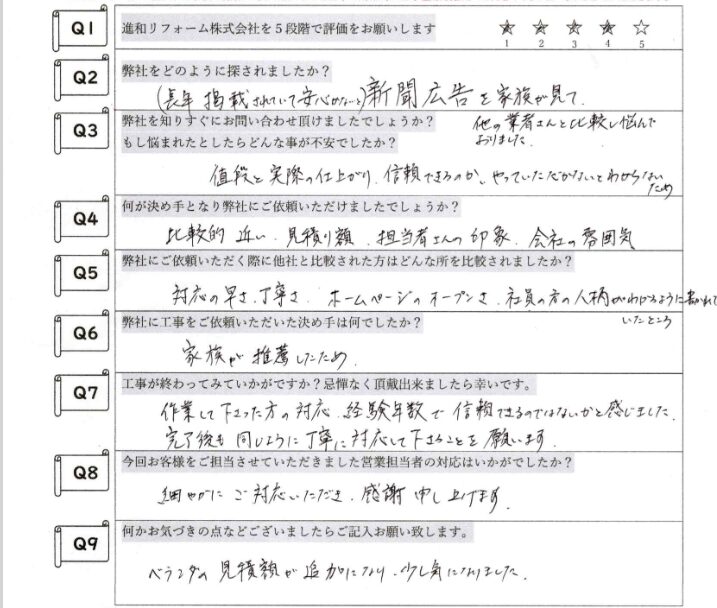 Q1 進和リフォーム株式会社を5段階で評価をお願いします
1 2 3 4 5
Q2 弊社をどのように探されましたか?
(長年 掲載されていて安心かな、と) 新聞広告を家族が見て.
Q3 弊社を知りすぐにお問い合わせ頂けましたでしょうか?
他の業者さんと比較し悩んで
おりました.
もし悩まれたとしたらどんな事が不安でしたか?
値段と実際の仕上がり. 信頼できるのか、やっていただかないとわからない
ため
Q4 何が決め手となり弊社にご依頼いただけましたでしょうか?
比較的 近い. 見積り額. 担当者さんの印象. 会社の雰囲気
Q5 弊社にご依頼いただく際に他社と比較された方はどんな所を比較されましたか?
対応の早さ、丁寧さ. ホームページのオープンさ. 社員の方の人柄がわかるように書かれて
いたところ
Q6 弊社に工事をご依頼いただいた決め手は何でしたか?
家族が推薦したため.
Q7 工事が終わってみていかがですか?忌憚なく頂戴出来ましたら幸いです。
作業して下さった方の対応. 経験年数で信頼できるのではないかと感じました.
完了後も同じように丁寧に対応して下さることを願います.
Q8 今回お客様をご担当させていただきました営業担当者の対応はいかがでしたか?
細やかにご対応いただき、感謝申し上げます.
Q9 何かお気づきの点などございましたらご記入お願い致します。
ベランダの見積額が追加になり、少し気になりました.